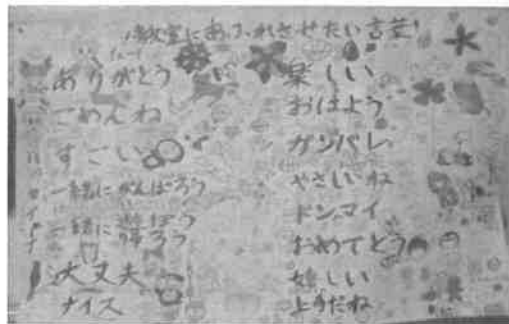 教室にあふれさせたい言葉!
ありがとう
ごめんね
すごい
一緒にがんばろう
一緒に遊ぼう
帰ろう
大丈夫
ナイス
楽しい
おはよう
ガンバレ
やさしいね
ドンマイ
おめでとう
嬉しい
上手だね